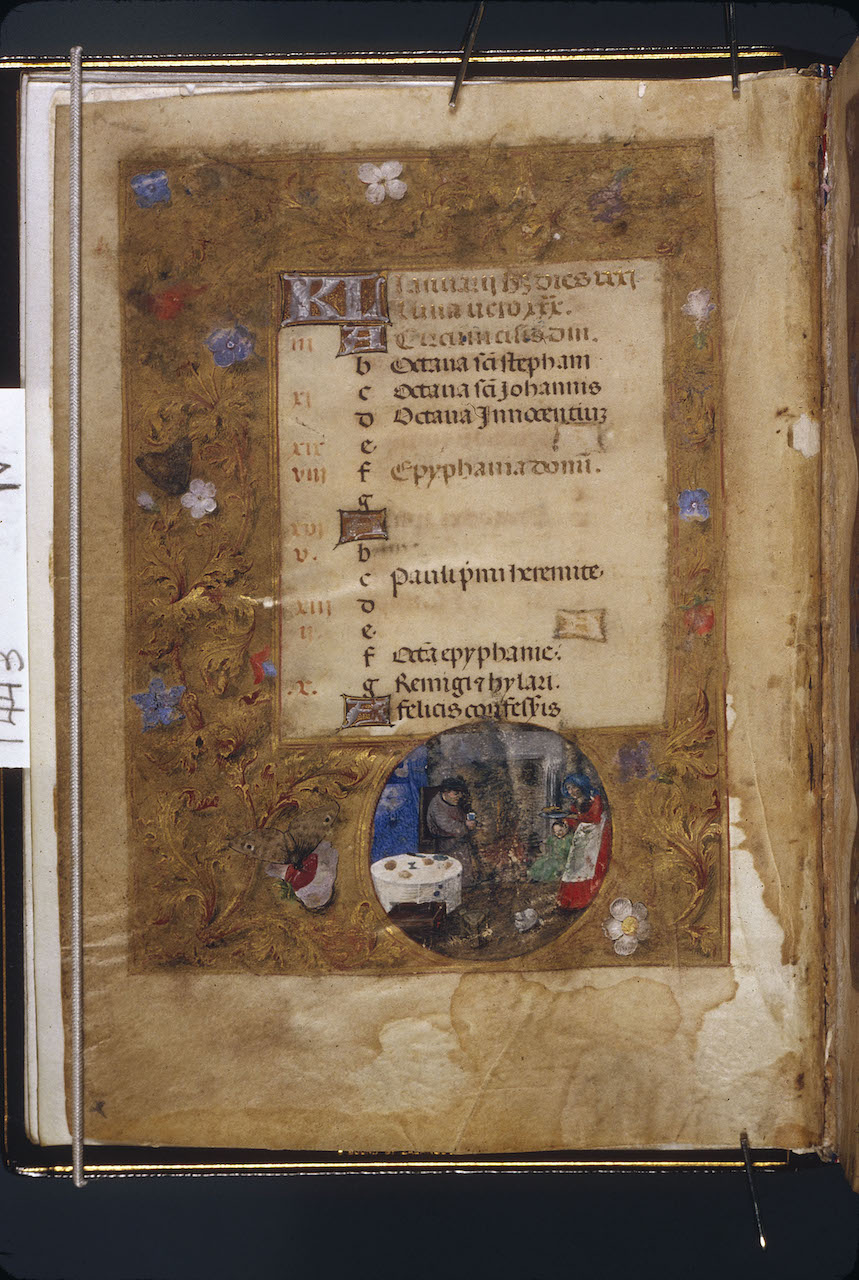 KL Januarij hꝫ dies xxxi
Luna uero xxx.
iii A Circūcisis dm̄.
b Octaua sc̄i stephani
xi c Octaua sc̄i Johannis
d Octaua Innocentiuꝫ
xix e
viii f Epyphania dom̄.
g
xvi A
v. b
c Pauli pͥmi heremite.
xiii d
ii e
f Octā epyphanie.
.x. g Remigi ⁊ hylari.
A felicis confessͦis
1443